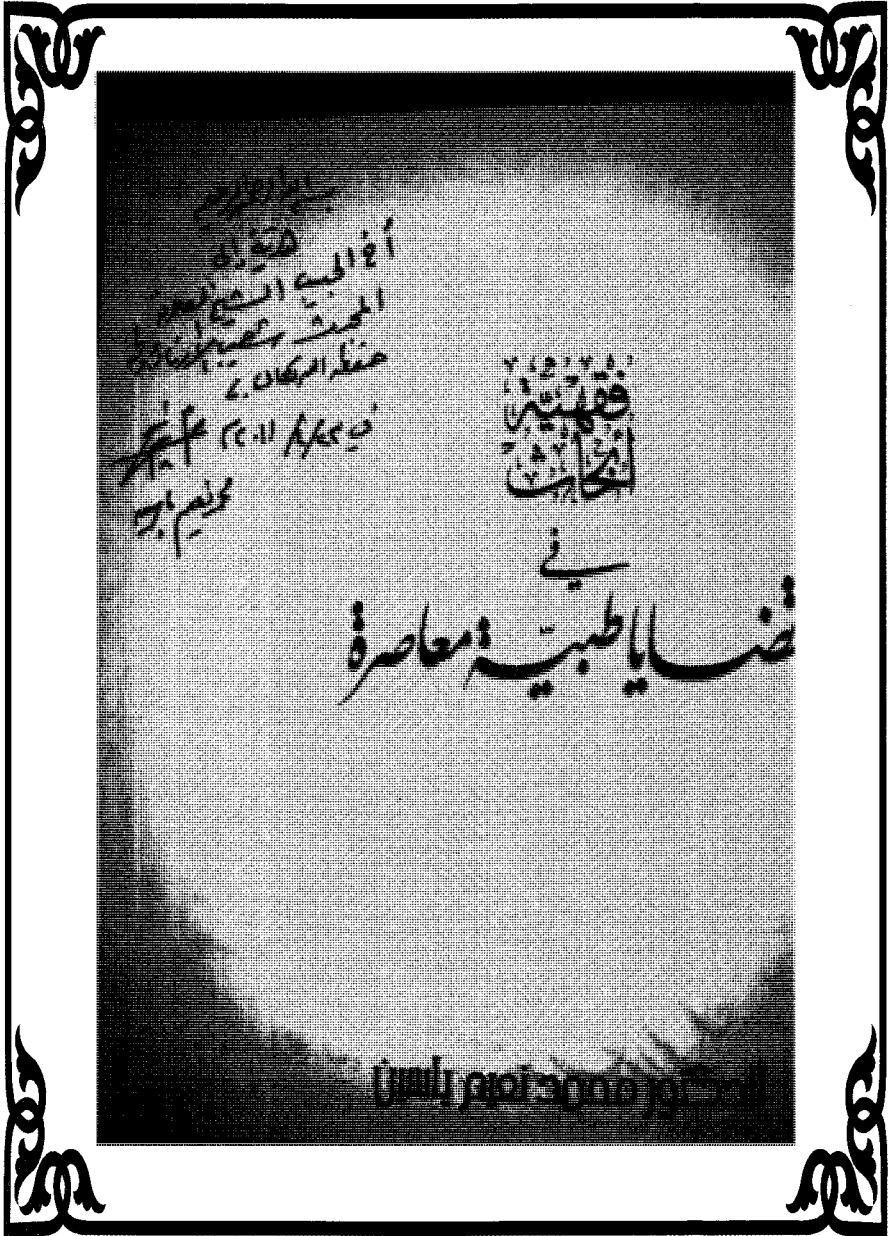 بسم الله الرحمن الرحيم
هدية إلى
أخ الحبيب الشيخ العلامة
المحدث شعيب الأرناؤوط
حفظه الله تعالى
في ٢٠١١ م
محمد نعيم ياسين
أبحاث
فقهية
في
قضايا طبية معاصرة
الدكتور محمد نعيم ياسين